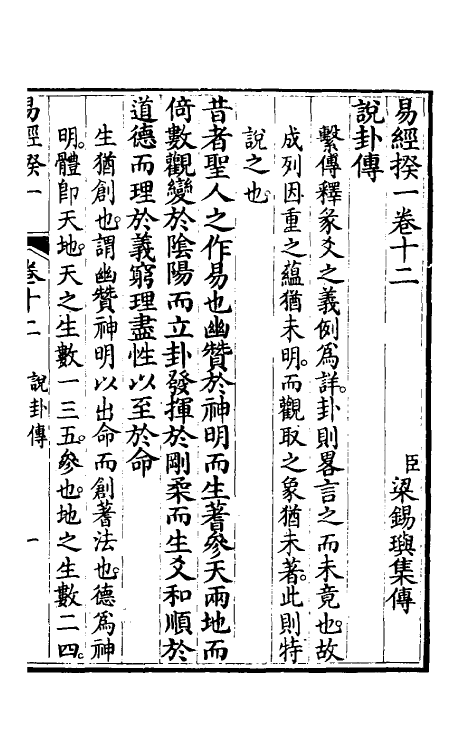 易經揆一卷十二
臣梁錫璵集傳
說卦傳
繫傳釋彖爻之義例爲詳。卦則畧言之而未竟也。故
成列因重之蘊猶未明。而觀取之象猶未著。此則特
說之也。
昔者聖人之作易也幽贊於神明而生蓍參天兩地而
倚數觀變於陰陽而立卦發揮於剛柔而生爻和順於
道德而理於義窮理盡性以至於命
生猶創也。謂幽贊神明以出命而創蓍法也。德爲神
明。體卽天地。天之生數一三五。參也。地之生數二四。
易經揆一
卷十二
說卦傳
一